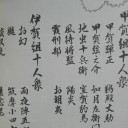 甲賀組十人衆
甲賀弾正 鵜殿丈助
甲賀弦之介 如月左衛門
地虫十兵衛 室賀豹馬
風待将監 陽炎
霞刑部 お胡夷
伊賀組十人衆
お幻 雨夜陣五郎
朧 筑摩小四郎